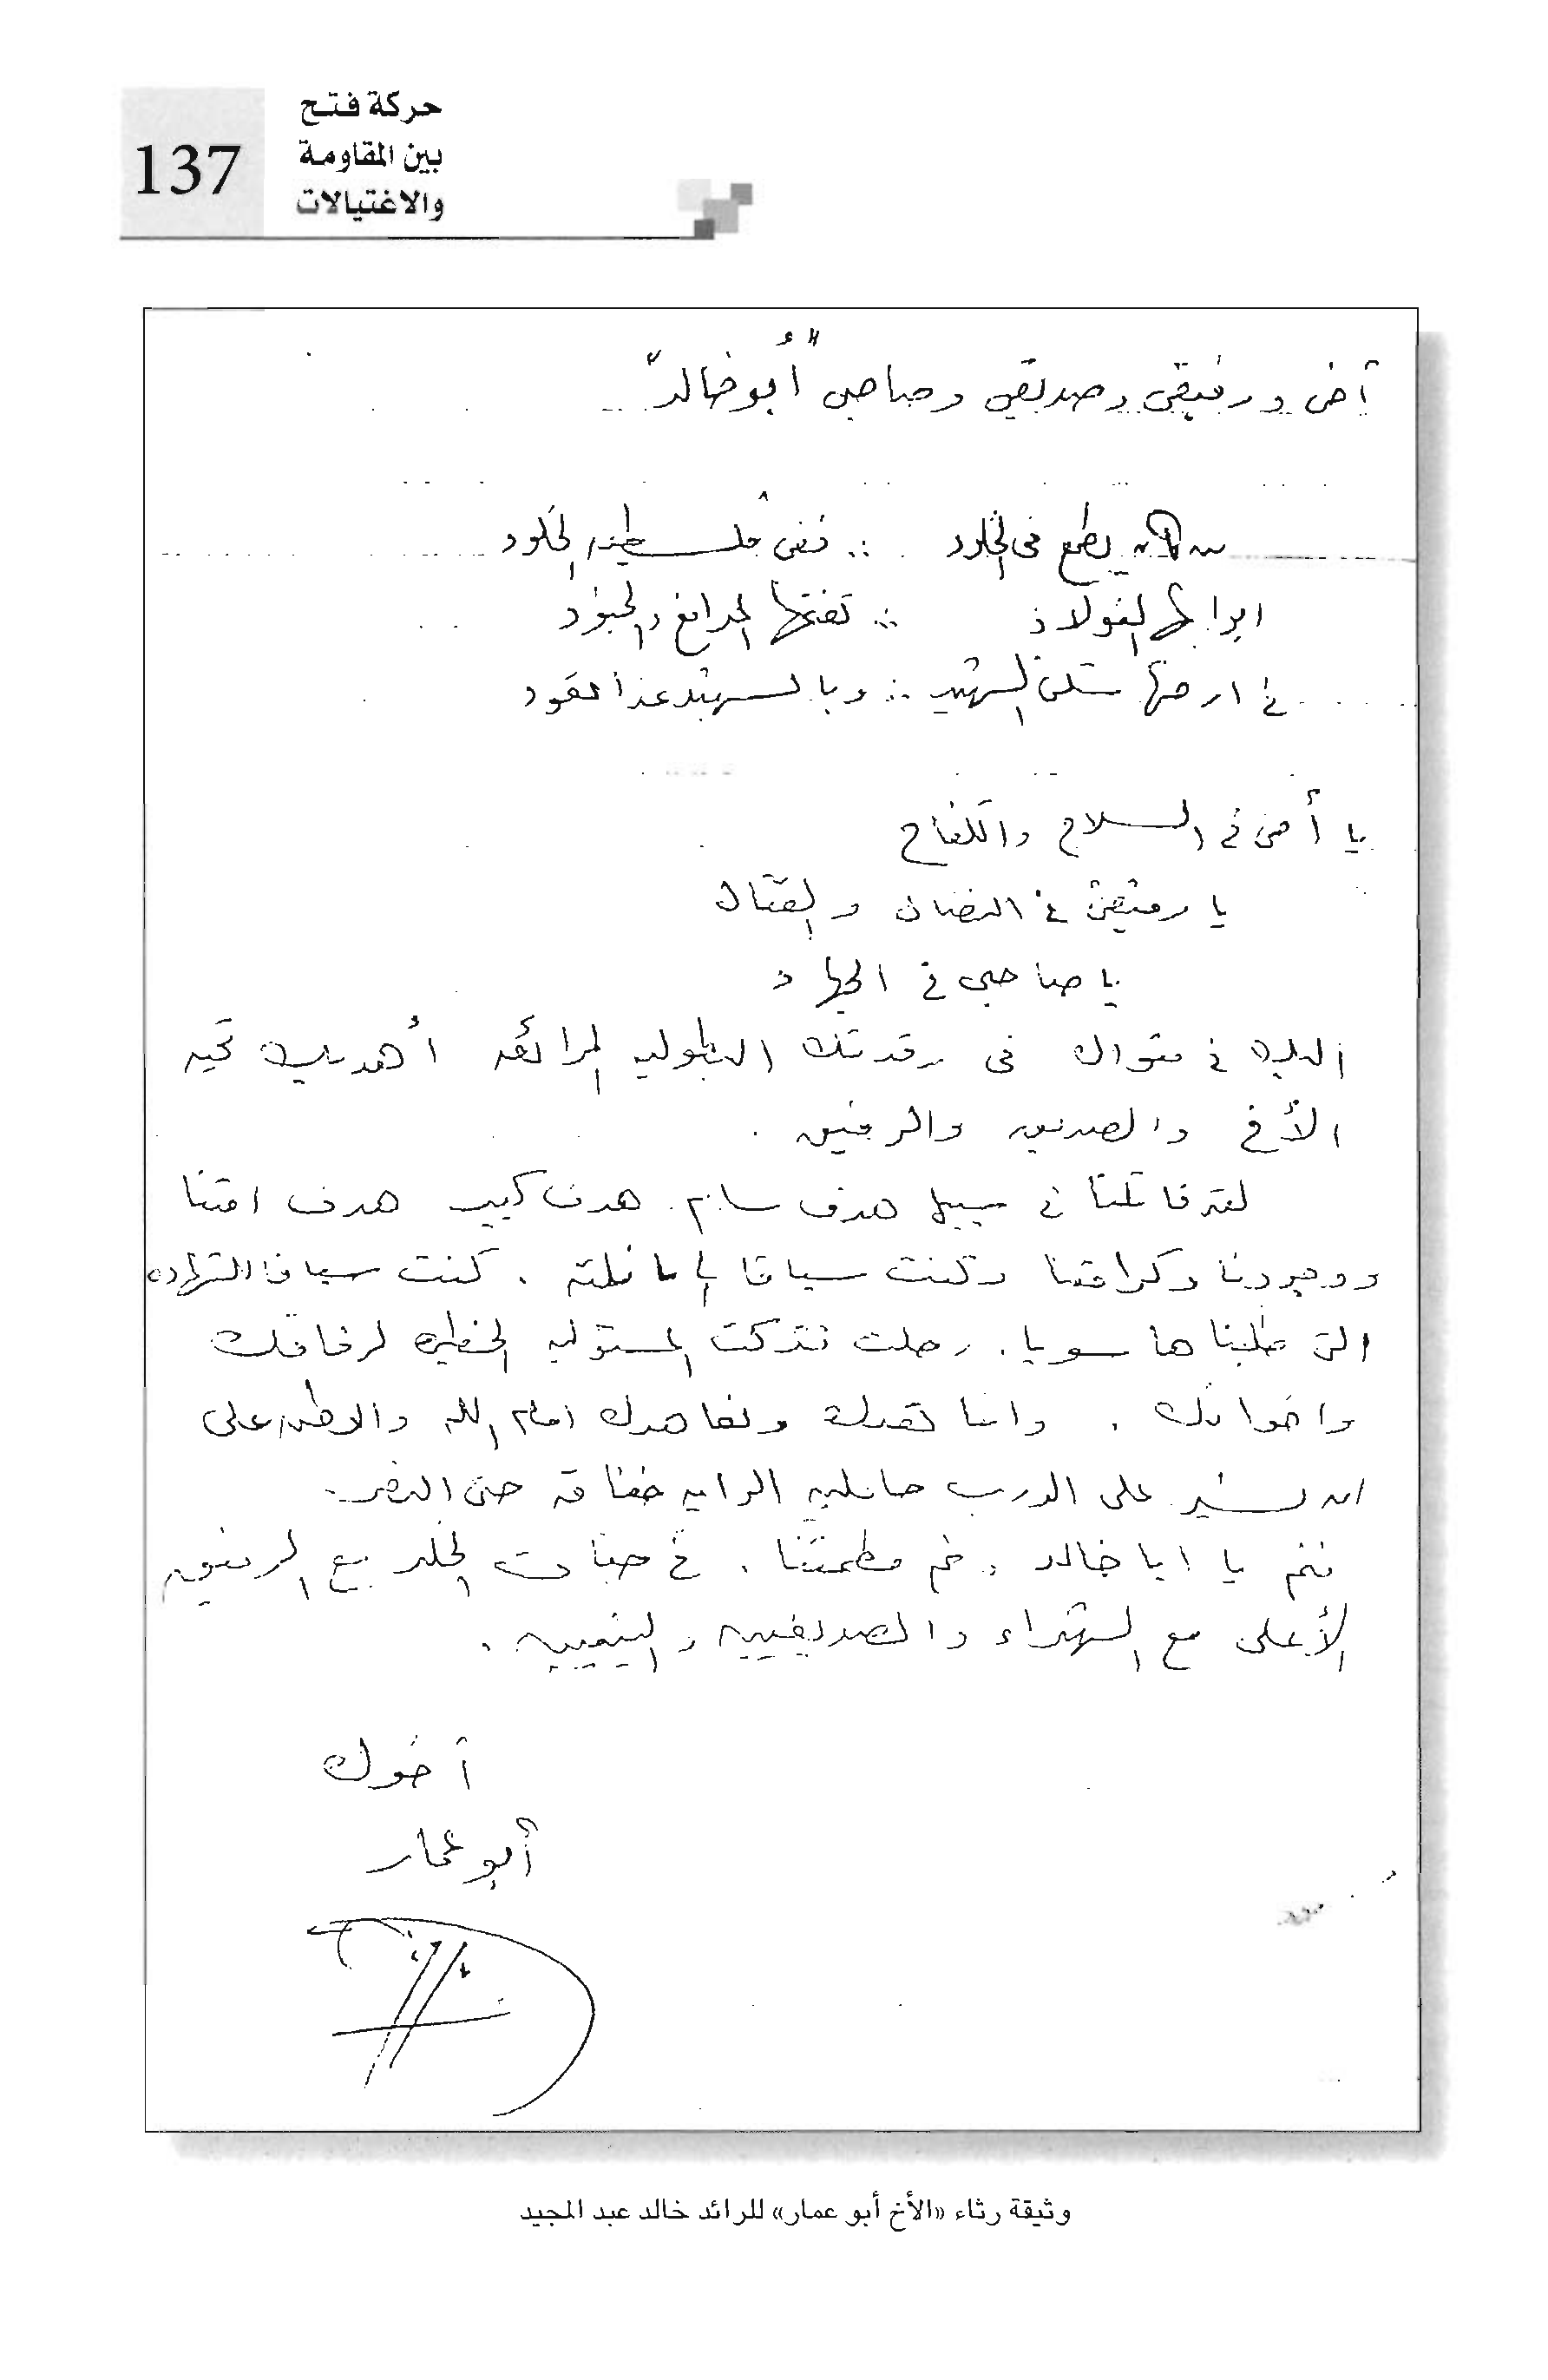 حركة فتح
بين المقاومة
والاغتيالات
137
أخي ورفيقي وصديقي وصاحبي "أبو خالد"
من كان يطمع في الخلود .: ففي فلسطين الخلود
ابوابها الفولاذ .: تفتحها المدافع والجنود
في ارضها سكن الشهيد .: وبالشهيد غداً نعود
يا أخي في السلاح والكفاح
يا رفيقي في النضال والقتال
يا صاحبي في الجهاد
اليك في مثواك في رقدتك البطوليه الرائعه أهديك تحيه
الأخ والصديق والرفيق .
لقد قاتلنا في سبيل هدف سام . هدف كبير هدف امتنا
ووجودنا وكرامتنا وكنت سباقا لما نلته . كنت سباقا الشهاده
التي طلبناها سويا . رحلت فتركت المسئوليه الخطيره لرفاقك
واخوانك . واننا نعدك ونعاهدك امام الله والوطن على
ان نسير على الدرب حاملين الرايه خفاقه حتى النصر .
فنم يا ابا خالد ، نم مطمئنا . في جنات الخلد مع الرفيق
الأعلى مع الشهداء والصديقيين والنبيين .
أخوك
أبو عمار
وثيقة رثاء «الأخ أبو عمار» للرائد خالد عبد المجيد